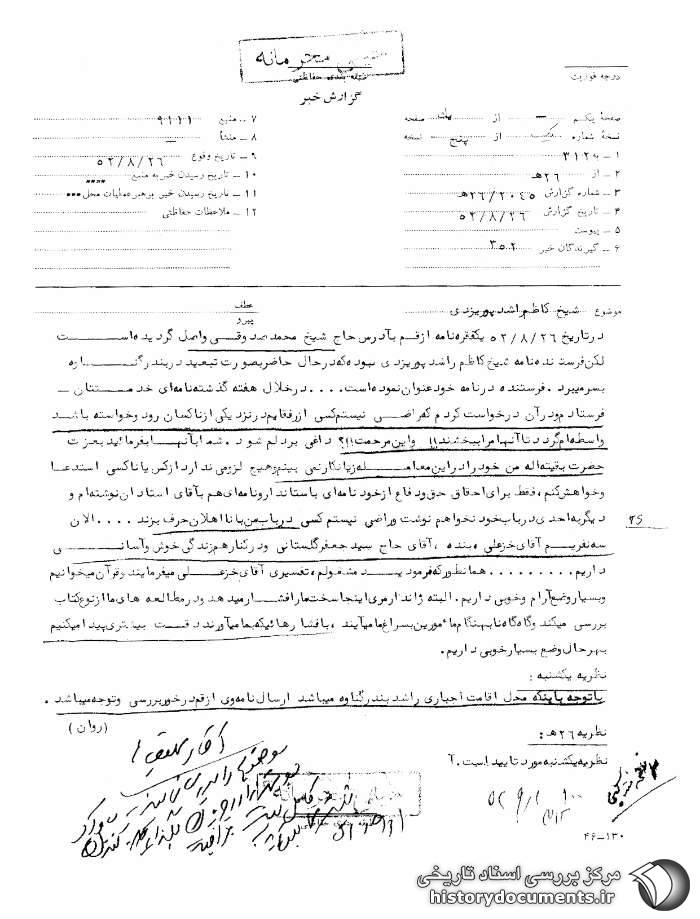 خیلی محرمانه
طبقه بندی حفاظتی
درجه فوریت
گزارش خبر
صفحهٔ یکم — از یک صفحه
نسخهٔ شماره یک از پنج نسخه
۱ – به ۳۱۲
۲ – از ۲۶هـ
۳ – شماره گزارش ۲۶/۲۰۴۵هـ
۴ – تاریخ گزارش ۵۲/۸/۲۶
۵ – پیوست
۶ – گیرندگان خبر ۳۵۲
۷ – منبع ۹۱۱۱
۸ – منشأ —
۹ – تاریخ وقوع ۵۲/۸/۲۶
۱۰ – تاریخ رسیدن خبر به منبع
۱۱ – تاریخ رسیدن خبر برهبر عملیات محل
۱۲ – ملاحظات حفاظتی
موضوع شیخ کاظم راشد پوریزدی
عطف
پیرو
درتاریخ ۵۲/۸/۲۶ یکفقره نامه ازقم بآدرس حاج شیخ محمد صدوقی واصل گردیده است
لکن فرستنده نامه شیخ کاظم راشد پوریزدی بوده که درحال حاضر بصورت تبعید دربندرگناوه
بسرمیبرد . فرستنده درنامه خود عنوان نموده است.... درخلال هفته گذشته نامه ای خدمتتان –
فرستادم ودرآن درخواست کردم که راضی نیستم کسی ازرفقایم درنزد یکی ازناکسان رود وخواسته باشد
واسطه ام گردد تا آنها مرا ببخشند!! واین مرحمت!!؟ داغی بردلم شود . شما بآنها بفرمائید بعزت
حضرت بقیته اله من خود رادراین معامله زیانکارنمی بینم وهیچ لزومی ندارد ازکس یا ناکسی استدعا
وخواهش کنم ، فقط برای احقاق حق ودفاع ازخود نامه ای باستاندارونامه ای هم بآقای استادان نوشته ام و
دیگر به احدی درباب خود نخواهم نوشت وراضی نیستم کسی درباب من با نااهلان حرف بزند .... الان
سه نفریم آقای خزعلی ، بنده ، آقای حاج سید جعفر گلستانی ودرکنارهم زندگی خوش وآسانی
داریم......... همانطورکه فرمودید مشغولم ، تفسیری آقای خزعلی میفرمایند وقرآن میخوانیم
وبسیار وضع آرام وخوبی داریم. البته ژاندارمری اینجا سخت ما رافشارمیدهد ودرمطالعه های ما ازنوع کتاب
بررسی میکند وگاه گاه نابهنگام مأمورین بسراغ ما میآیند ، بافشارهائیکه بما میآورند دقت بیشتری پیدا میکنیم
بهرحال وضع بسیارخوبی داریم.
نظریه یکشنبه :
باتوجه باینکه محل اقامت اجباری راشد بندرگناوه میباشد ارسال نامه وی ازقم درخوربررسی وتوجه میباشد .
(روان)
نظریه ۲۶هـ :
نظریه یکشنبه مورد تایید است. آ
خیلی محرمانه
طبقه بندی حفاظتی
۴۶–۱۳۰
مرکز بررسی اسناد تاریخی
historydocuments.ir